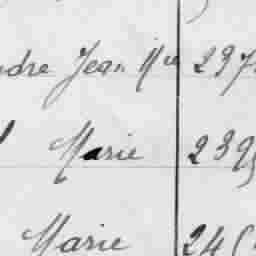 ndre Jean Mie 297
Marie 2395
Marie 24